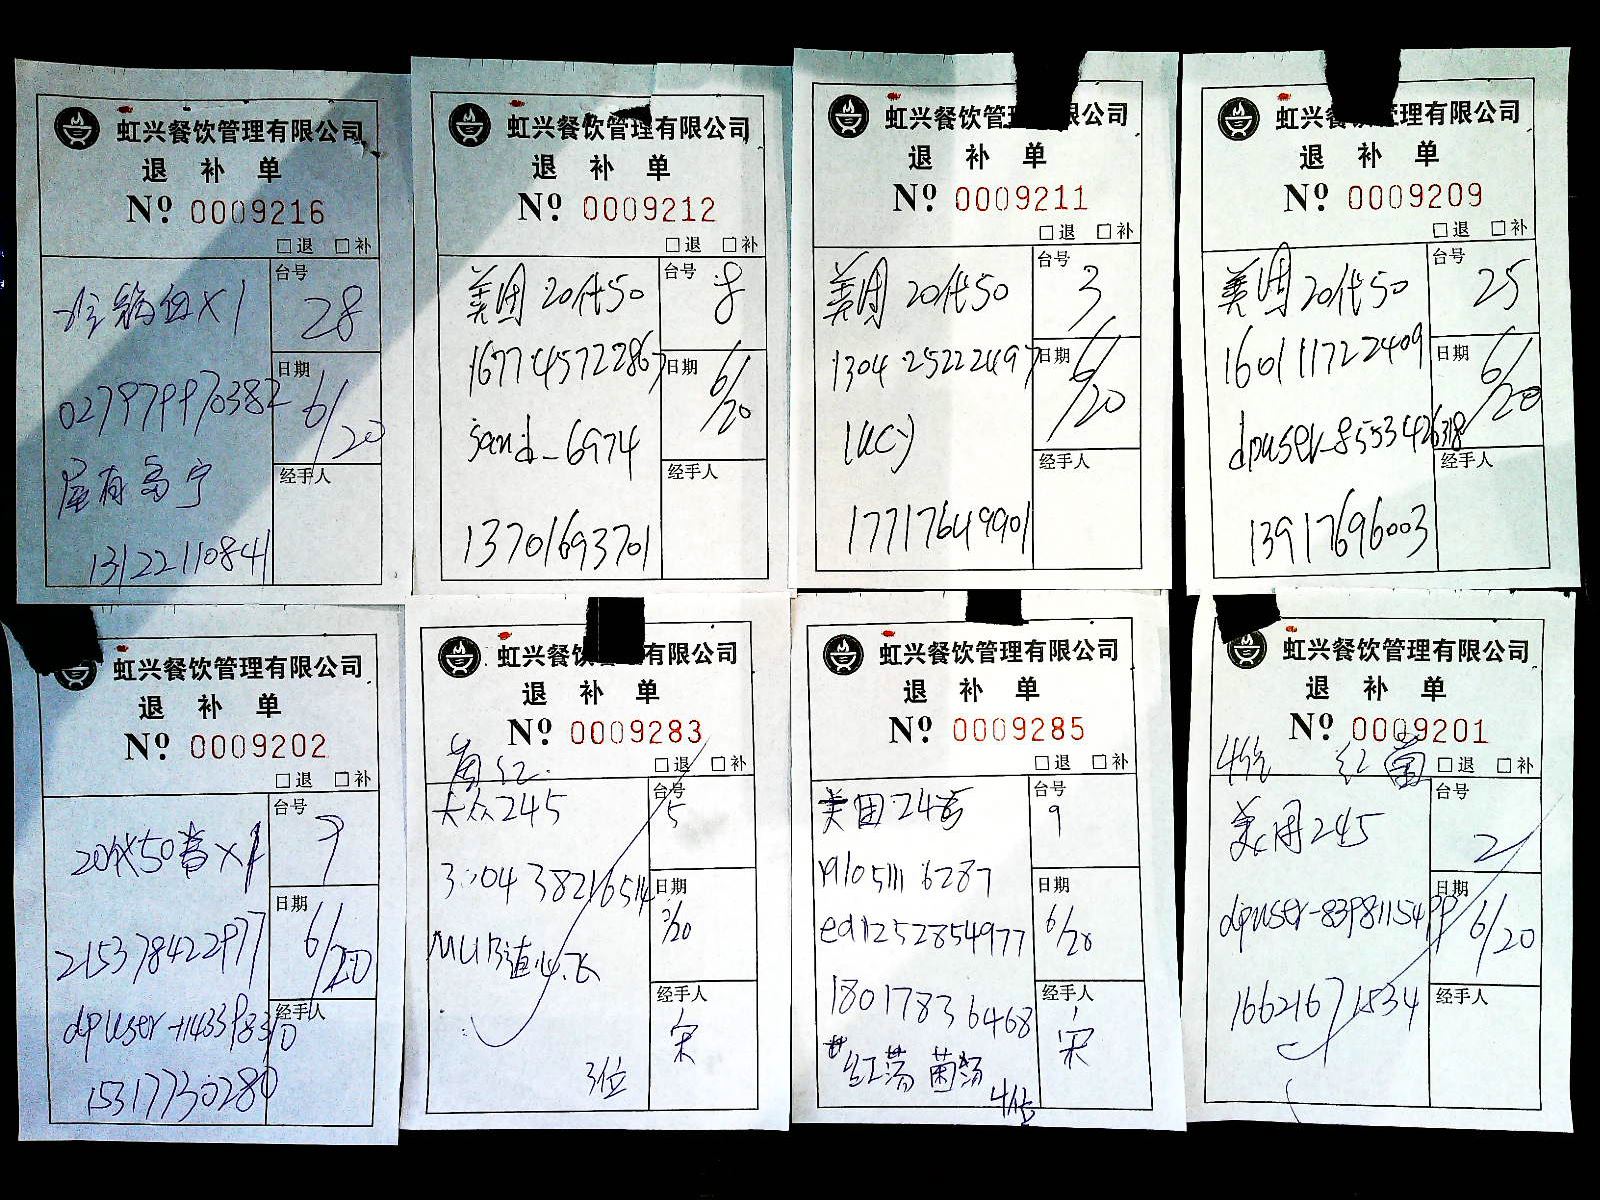 虹兴餐饮管理有限公司
退 补 单
Nº 0009216
□退 □补
台号
28
x1
日期
6/20
027979970382
经手人
13122110841
虹兴餐饮管理有限公司
退 补 单
Nº 0009212
□退 □补
美团 20代50
台号
8
167745722867
日期
6/20
sand_6974
经手人
13701693701
虹兴餐饮管 限公司
退 补 单
Nº 0009211
□退 □补
美团 20代50
台号
3
1304 25222497
日期
6/20
lucy
经手人
17717649901
虹兴餐 理有限公司
退 补 单
Nº 0009209
□退 □补
美团 20代50
台号
25
160111722409
日期
6/20
dpuser-8553426318
经手人
13917696003
虹兴餐饮管理有限公司
退 补 单
Nº 0009202
□退 □补
台号
20代50 x1
日期
6/20
215378422977
经手人
dpuser-11433983310
15317730280
虹兴餐饮 有限公司
退 补 单
Nº 0009283
菌 红
□退 □补
大众245
台号
5
04 38216514
日期
/20
经手人
宋
3位
虹兴餐饮管理有限公司
退 补 单
Nº 0009285
□退 □补
美团 245
台号
9
91051116287
日期
6/20
ed1252854977
18017836468
经手人
宋
红汤 菌汤
4位
虹兴餐饮管理有限公司
退 补 单
Nº 0009201
4位 红 菌
□退 □补
美团245
台号
2
dpuser-8398115499
日期
6/20
16621671834
经手人